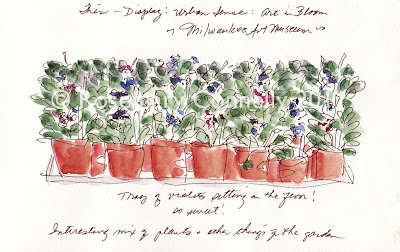 This - Display: Urban Sense: Art in Bloom
~ Milwaukee Art Museum ~
© Rosemary Connelly
Tray of violets sitting on the floor!
so sweet!
Interesting mix of plants & other things of the garden